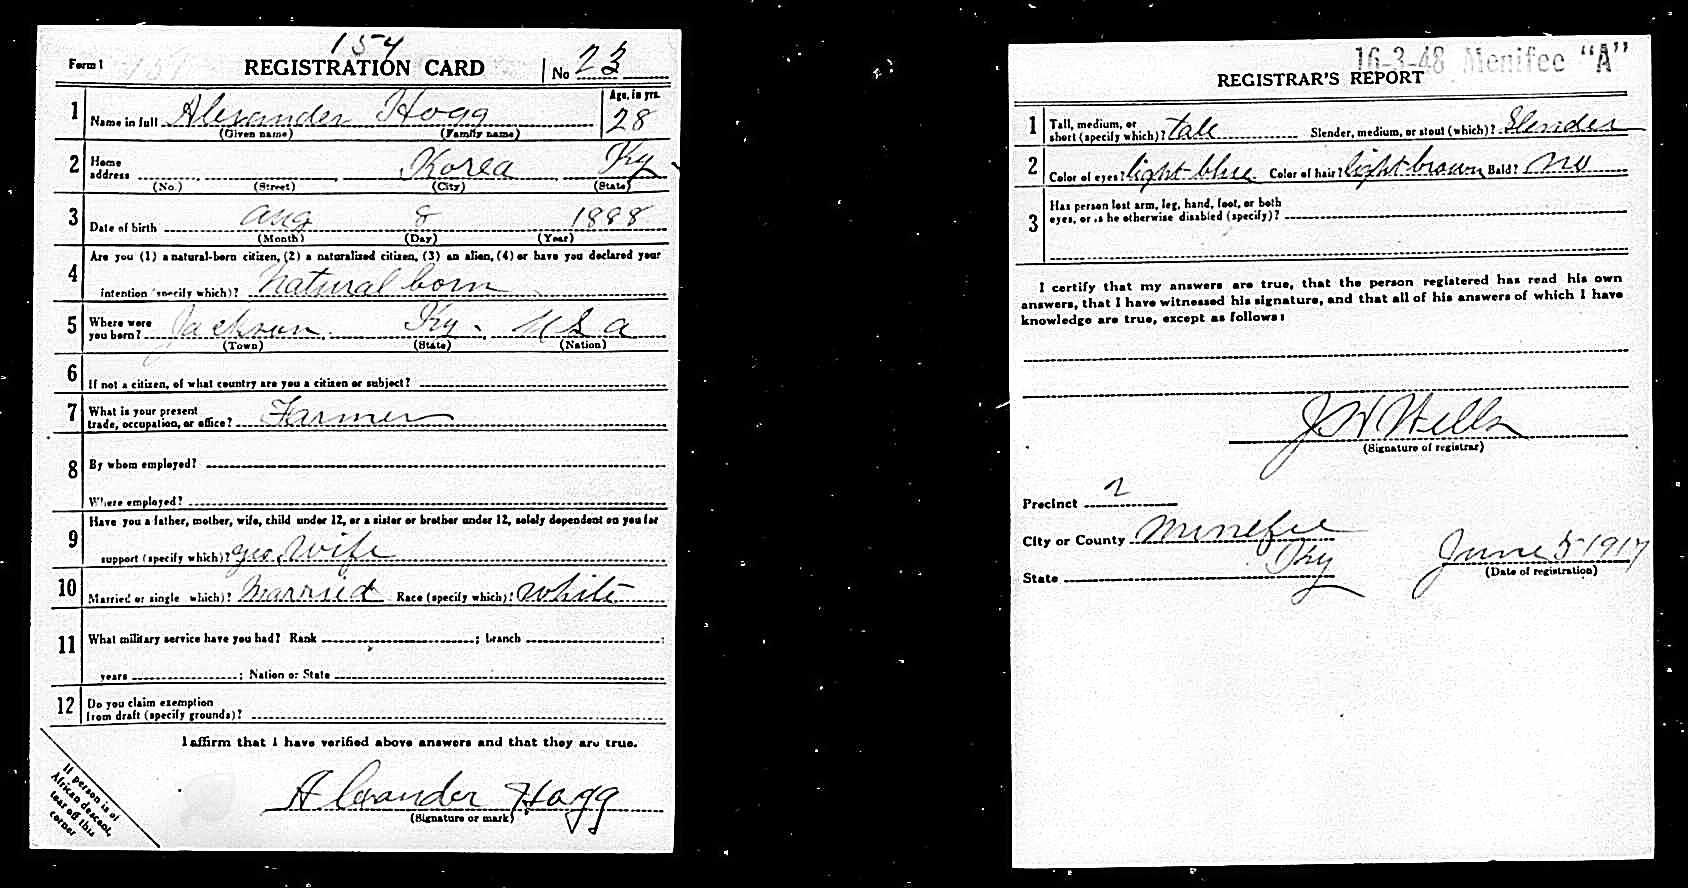 154
Form 1 REGISTRATION CARD No 23
1 Name in full Alexander Hogg Age, in yrs. 28
(Given name) (Family name)
2 Home address Korea Ky
(No.) (Street) (City) (State)
3 Date of birth Aug 8 1888
(Month) (Day) (Year)
4 Are you (1) a natural-born citizen, (2) a naturalized citizen, (3) an alien, (4) or have you declared your
intention (specify which)? Natural born
5 Where were you born? Jackson Ky. U S A
(Town) (State) (Nation)
6 If not a citizen, of what country are you a citizen or subject?
7 What is your present trade, occupation, or office? Farmer
8 By whom employed?
Where employed?
9 Have you a father, mother, wife, child under 12, or a sister or brother under 12, solely dependent on you for
support (specify which)? Wife
10 Married or single which)? Married Race (specify which)? White
11 What military service have you had? Rank ; branch ;
years ; Nation or State
12 Do you claim exemption
from draft (specify grounds)?
I affirm that I have verified above answers and that they are true.
Alexander Hogg
(Signature or mark)
If person is of
African descent,
tear off this
corner
16-3-48 Menifee "A"
REGISTRAR'S REPORT
1 Tall, medium, or short (specify which)? tall Slender, medium, or stout (which)? Slender
2 Color of eyes? light blue Color of hair? light brown Bald? No
3 Has person lost arm, leg, hand, foot, or both
eyes, or is he otherwise disabled (specify)?
I certify that my answers are true, that the person registered has read his own
answers, that I have witnessed his signature, and that all of his answers of which I have
knowledge are true, except as follows:
J W Wells
(Signature of registrar)
Precinct 2
City or County Minefee
State Ky June 5 1917
(Date of registration)